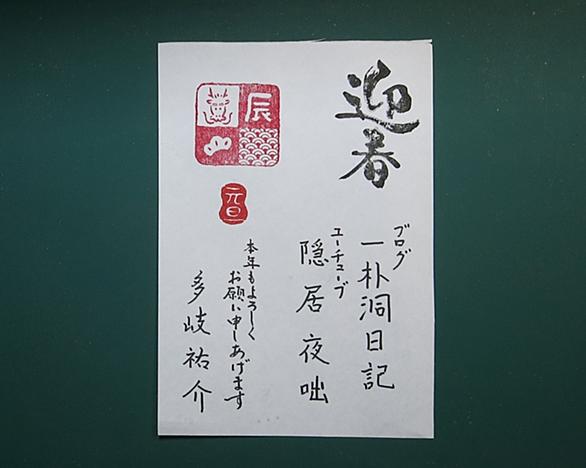 迎春
ブログ
一朴洞日記
ユーチューブ
隠居夜咄
本年もよろしく
お願い申しあげます
多岐祐介
辰
元旦